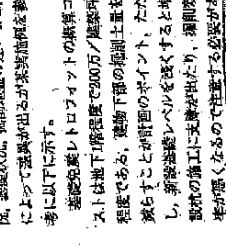 によって差異が出るが実施例を参
考に以下に示す。
基礎免震レトロフィットの概算コ
ストは地下1階程度で200万/建築坪
程度である。建物下部の掘削土量を
減らすことが計画のポイント。ただ
し、新設基礎レベルを浅くすると
設杭の施工に支障が出たり、掘削効
率が悪くなるので注意する必要があ